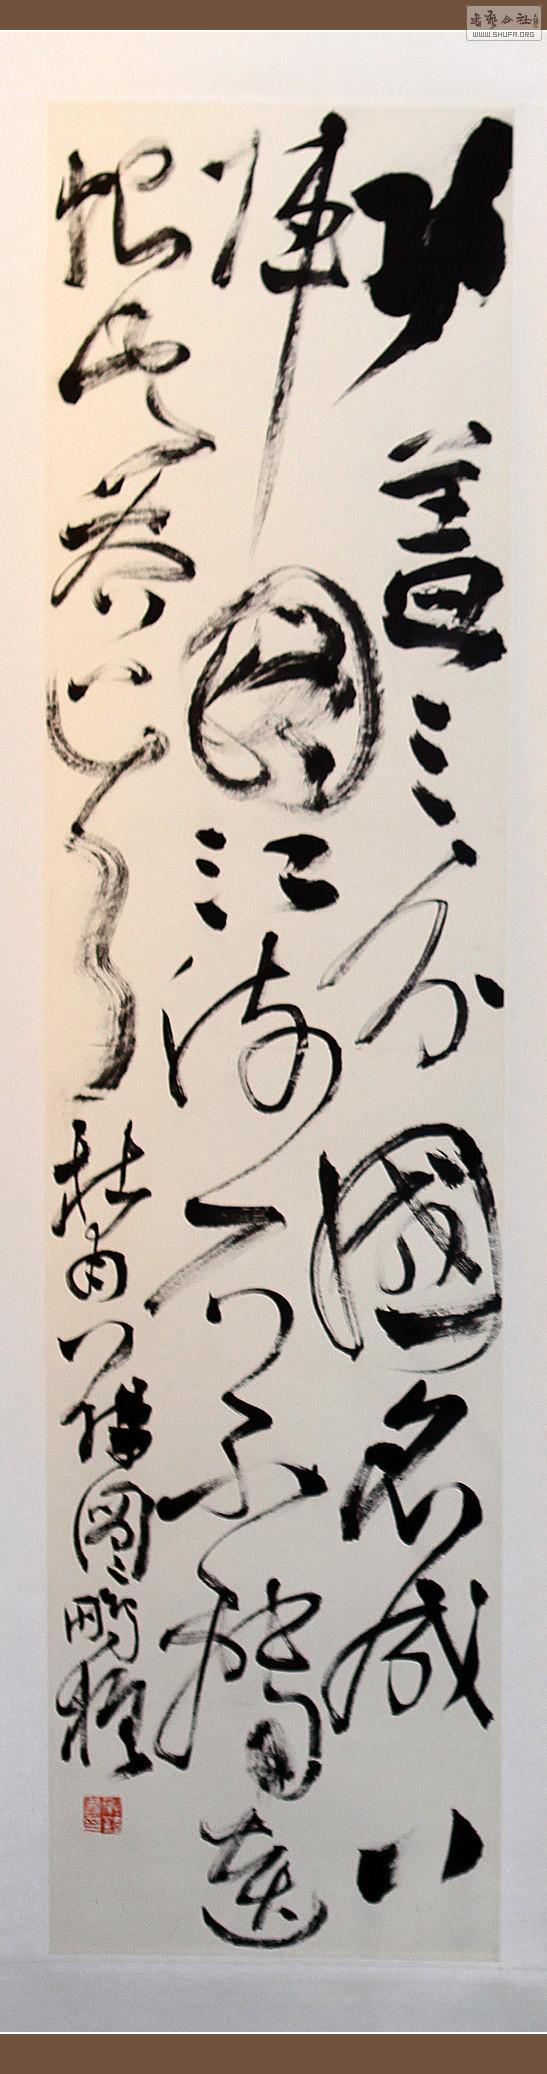 书艺公社
WWW.SHUFA.ORG
功盖三分國名成八
陣圖江流石不轉遺
恨失吞吴杜甫八陣圖